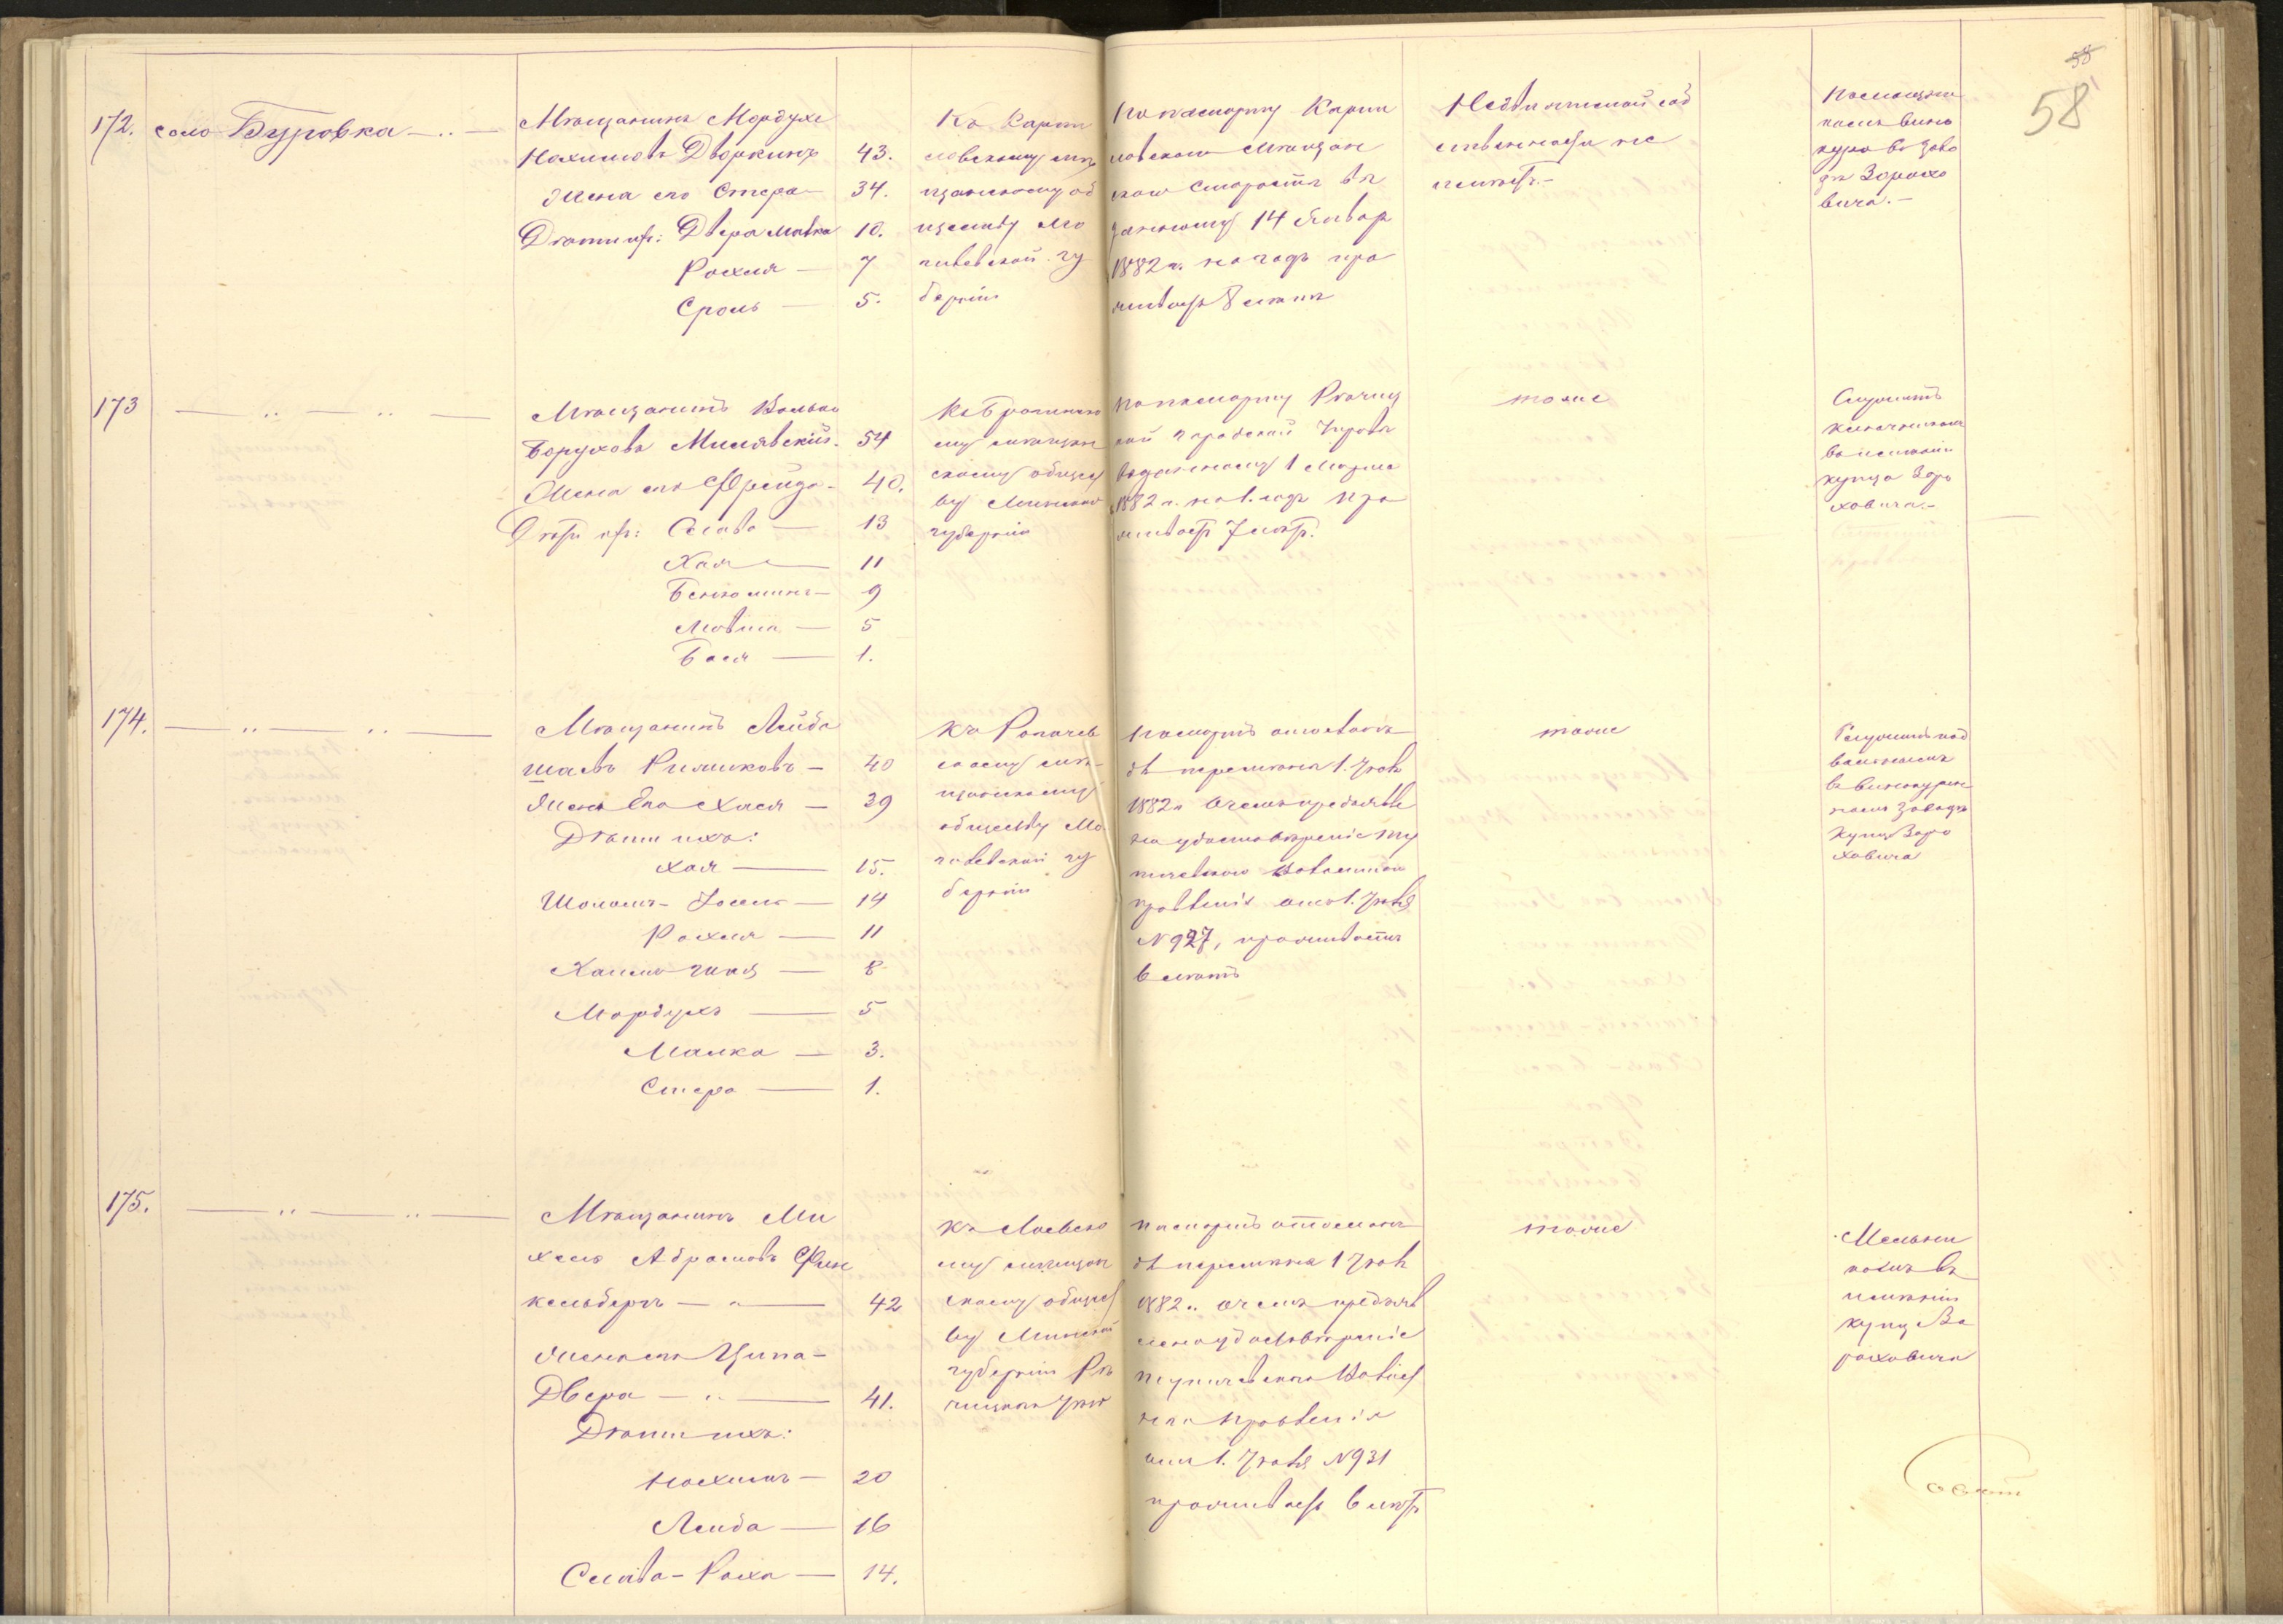 58
58
172.
село Буровка
Мѣщанинъ Мордухъ
Нохимовъ Дворкинъ 43.
Жена его Стера 34.
Дѣти ихъ: Двера Малка 10.
Рохля 7
Сроль 5.
Къ Карпи
ловскому мѣ
щанскому об
ществу Мо
гилевской гу
берніи
По паспорту Карпи
ловскаго мѣщан
скаго старосты вы
данному 14 Января
1882 г. на годъ про
живаетъ 8 лѣтъ
Недвижимой соб
ственности не
имѣетъ.
вино
кура въ заво
дѣ Зорохо
вича.
173
Мѣщанинъ Волько
Боруховъ Милявскій. 54
Жена его Фрейда 40.
Дѣти ихъ: Слава 13
Хая 11
Беньоминъ 9
Мовша 5
Бася 1.
Къ Брагинско
му мѣщан
скому общест
ву Минской
губерніи
По паспорту Рѣчиц
кой городской Управы
выданному 1 Марта
1882 г. на 1. годъ про
живаетъ 7 лѣтъ.
тоже
Служитъ
ключникомъ
въ имѣніи
купца Зоро
ховича.
174.
Мѣщанинъ Лейба
шаевъ Римшковъ 40
Жена Его Хася 39
Дѣти ихъ:
Хая 15.
Шоломъ-Іосель 14
Рохля 11
Хаимъ 8
Мордухъ 5
Малка 3.
Стера 1.
Къ Рогачев
скому мѣ
щанскому
обществу Мо
гилевской гу
берніи
Паспортъ отосланъ
для перемѣны 1. Іюля
1882 г. о чемъ предъявле
но удостовѣреніе Ту
пичевского Волостного
правленія отъ 1. Іюля
№ 927, проживаетъ
6 лѣтъ
тоже
Служитъ под
вальнымъ
въ винокурен
номъ заводѣ
Купца Зоро
ховича
175.
Мѣщанинъ Ми
хель Абрамовъ Фин
кельбергъ 42
Жена его Ципа-
Двера 41.
Дѣти ихъ:
Нохимъ 20
Лейба 16
Слава-Роха 14.
Къ Лоевско
му мѣщан
скому общест
ву Минской
губерніи Рѣ
чицкаго уѣз
Паспортъ отосланъ
для перемѣны 1 Іюля
1882 г. о чемъ предъяв
лено удостовѣреніе
Тупичевского Волост
наго Правленія
отъ 1. Іюля № 931
проживаетъ 6 лѣтъ
тоже
Мельни
комъ въ
имѣніи
купца Зо
роховича